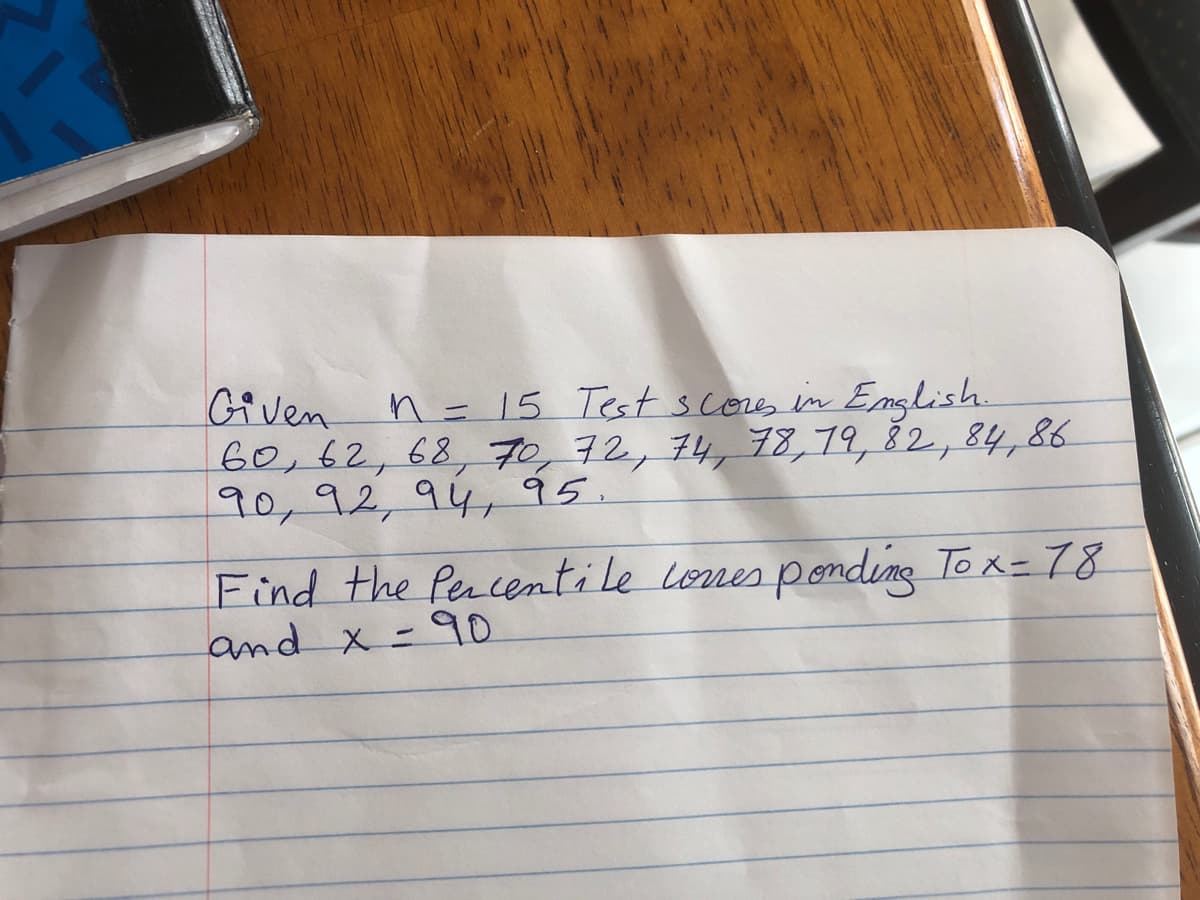 Given n = 15 Test scores in English.
60, 62, 68, 70, 72, 74, 78, 79, 82, 84, 86
90, 92, 94, 95.
Find the Percentile corresponding To x = 78
and x = 90